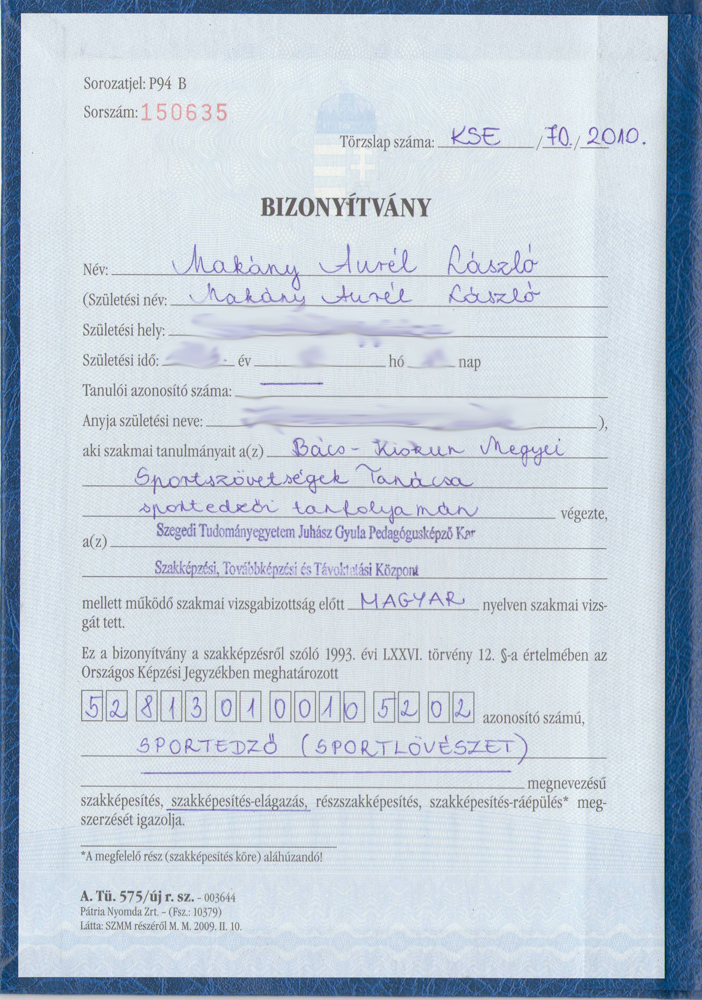 Sorozatjel: P94 B
Sorszám: 150635
Törzslap száma: KSE / 70. / 2010.
BIZONYÍTVÁNY
Név: Makány Aurél László
(Születési név: Makány Aurél László
Születési hely:
Születési idő: év hó nap
Tanulói azonosító száma:
Anyja születési neve: ),
aki szakmai tanulmányait a(z) Bács-Kiskun Megyei
Sportszövetségek Tanácsa
sportedzői tanfolyamán végezte,
a(z) Szegedi Tudományegyetem Juhász Gyula Pedagógusképző Kar
Szakképzési, Továbbképzési és Távoktatási Központ
mellett működő szakmai vizsgabizottság előtt MAGYAR nyelven szakmai vizs-
gát tett.
Ez a bizonyítvány a szakképzésről szóló 1993. évi LXXVI. törvény 12. §-a értelmében az
Országos Képzési Jegyzékben meghatározott
52 813 01 0010 52 02 azonosító számú,
SPORTEDZŐ (SPORTLÖVÉSZET)
megnevezésű
szakképesítés, szakképesítés-elágazás, részszakképesítés, szakképesítés-ráépülés* meg-
szerzését igazolja.
*A megfelelő rész (szakképesítés köre) aláhúzandó!
A. Tü. 575/új r. sz. - 003644
Pátria Nyomda Zrt. – (Fsz.: 10379)
Látta: SZMM részéről M. M. 2009. II. 10.